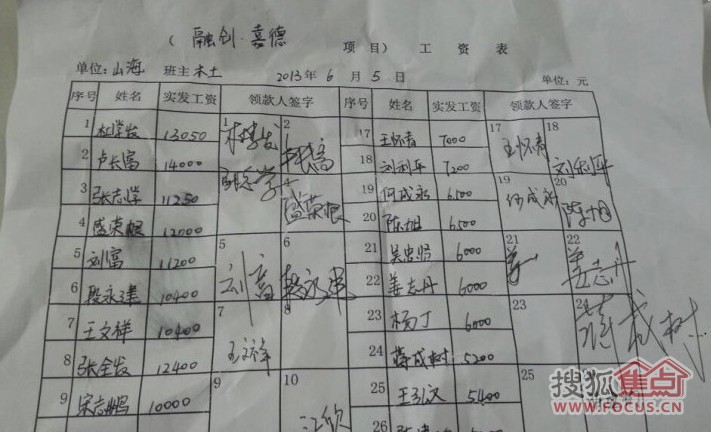 （融创·嘉德 项目）工资表
单位:山海 班主木土 2013年6月5日 单位:元
序号 姓名 实发工资 领款人签字 序号 姓名 实发工资 领款人签字
1 杜学发 13050 1 2 17 王怀青 7000 17 王怀青 18 刘利平
2 卢长富 14000 18 刘利平 7200
3 张志学 11250 张志学 盛荣根 19 何成永 6500 19 何成永 20 陈旭
4 盛荣根 12000 20 陈旭 6500
5 刘富 11200 5 刘富 6 段永建 21 吴忠贤 6000 21 22 姜志丹
6 段永建 10400 22 姜志丹 6000
7 王文祥 10400 7 王文祥 8 23 杨丁 6000 23 24 蒋成树
8 张全发 12400 24 蒋成树 5200
9 宋志鹏 10000 9 10 25 王引汉 5400 25
26
搜狐焦点
WWW.FOCUS.CN